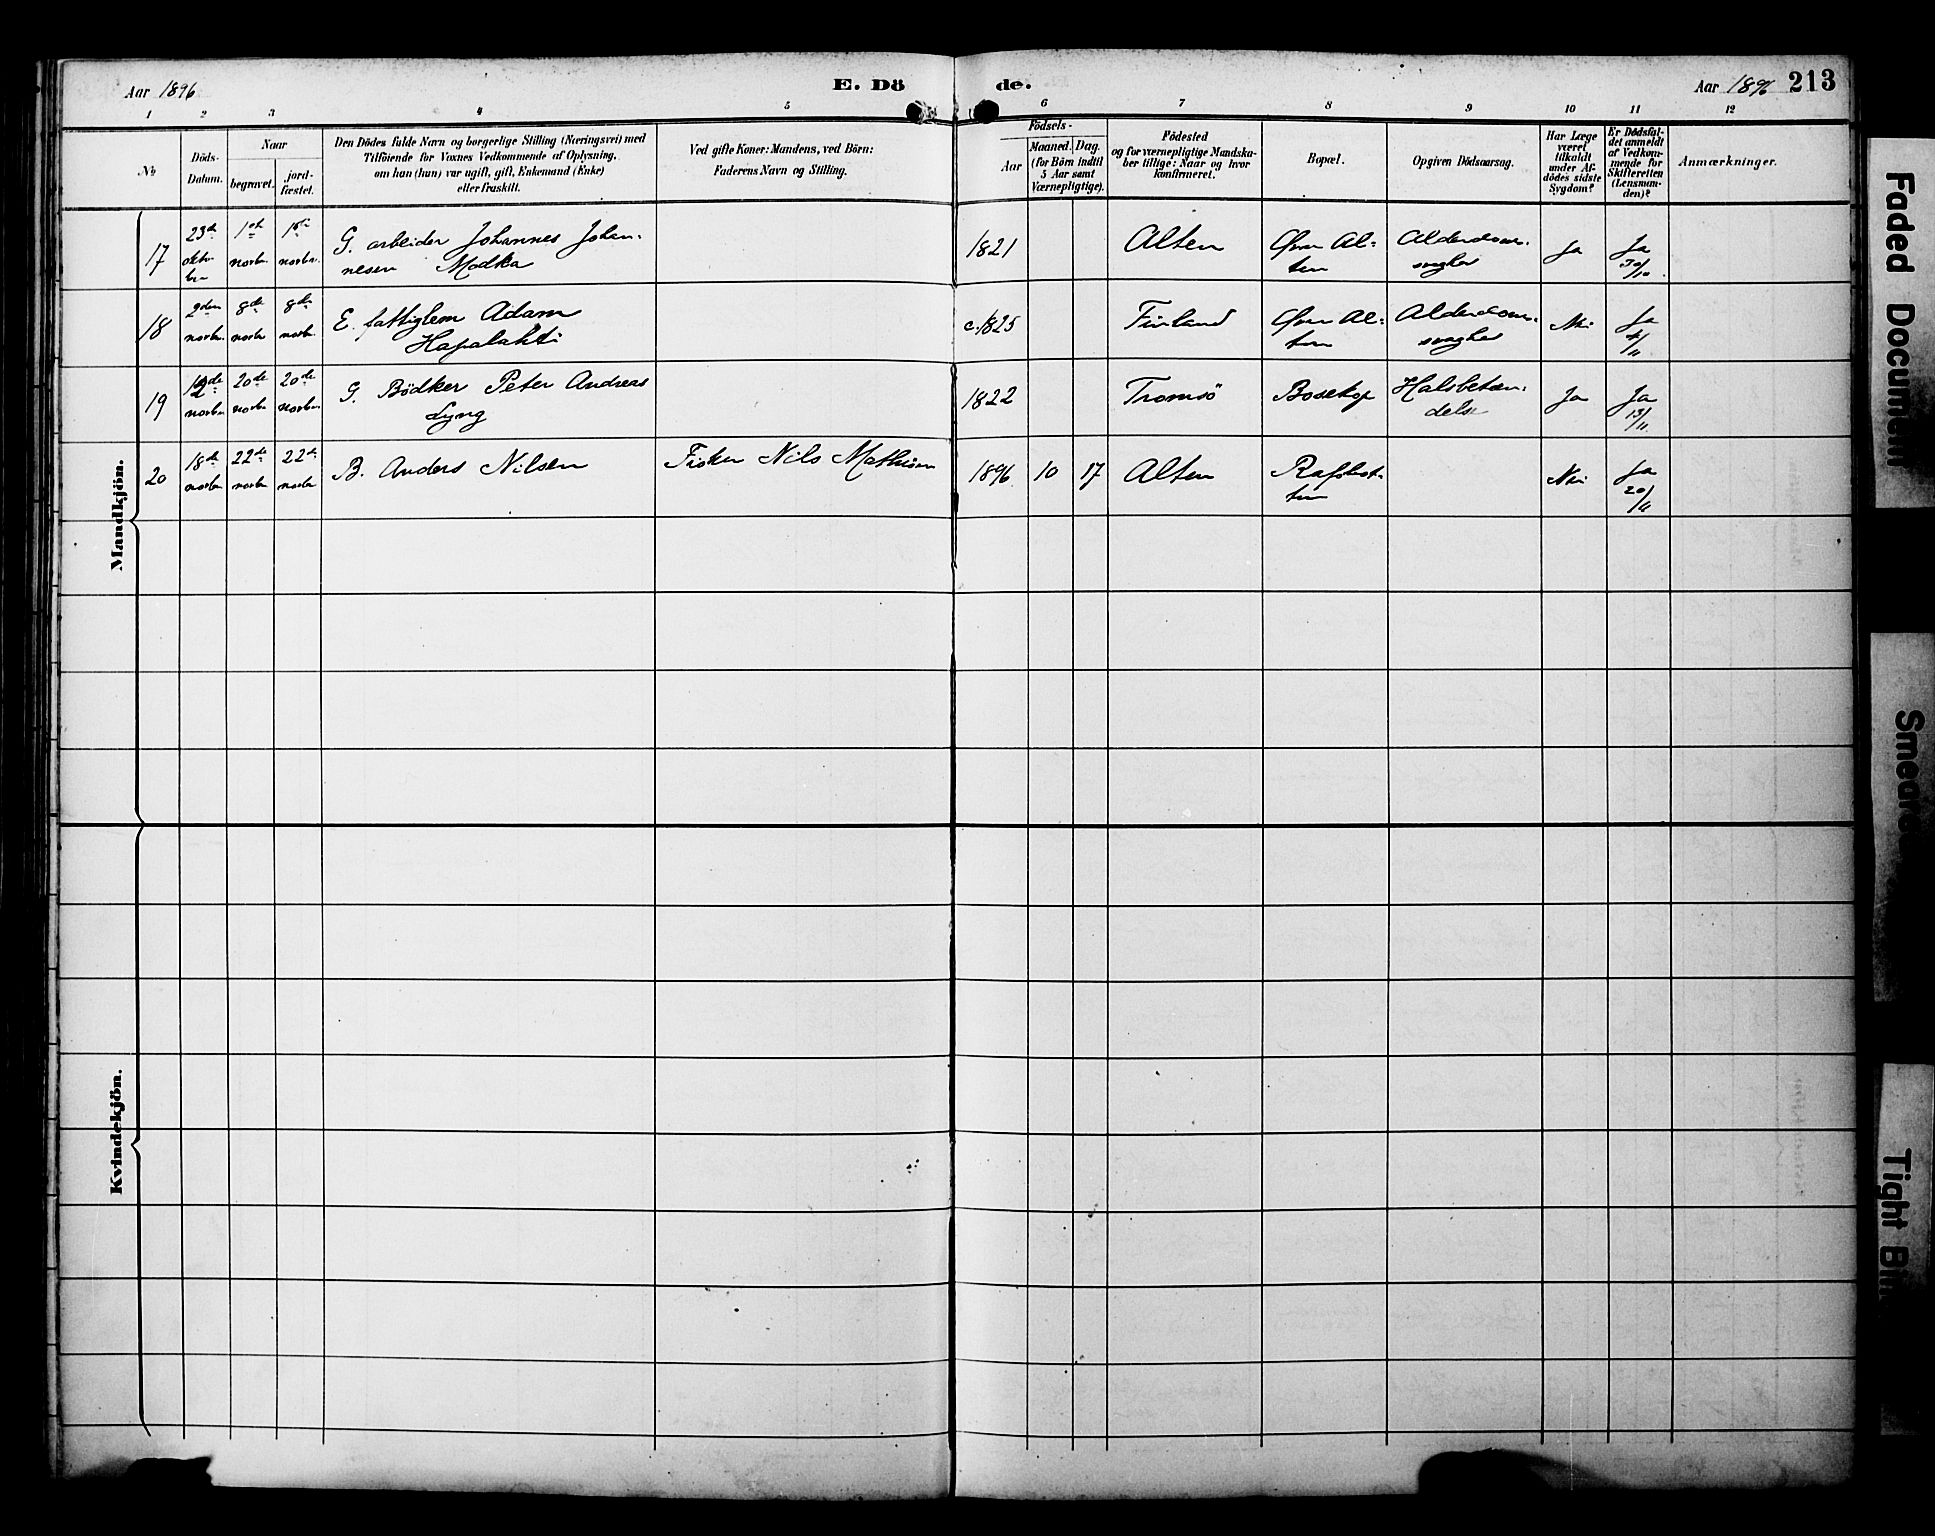 Aar 1896
E. Dö
de.
Aar 1896
213
1 2 3 4 5 6 7 8 9 10 11 12
No
Döds-
Datum.
Naar
begravet.
jord-
fæstet.
Den Dödes fulde Navn og borgerlige Stilling (Næringsvei) med
Tilföiende for Voxnes Vedkommende af Oplysning,
om han (hun) var ugift, gift, Enkemand (Enke)
eller fraskilt.
Ved gifte Koner: Mandens, ved Börn:
Faderens Navn og Stilling.
Födsels-
Aar
Maaned.
Dag.
(for Börn indtil
5 Aar samt
Værnepligtige).
Födested
og for værnepligtige Mandska-
ber tillige: Naar og hvor
konfirmeret.
Bopæl.
Opgiven Dödsaarsag.
Har Læge
været
tilkaldt
under Af-
dödes sidste
Sygdom?
Er Dödsfal-
det anmeldt
af Vedkom-
mende for
Skifteretten
(Lensman-
den)?
Anmærkninger.
Mandkjön.
17
23de
okto-
ber
1ste
novbr.
1ste
novbr.
G. arbeider Johannes Johan-
nesen Modka
1821
Alten
Øvre Al-
ten
Alderdoms-
svaghed
Ja
Ja
30/10
18
2den
novbr.
8de
novbr
8de
novbr.
E. fattiglem Adam
Hapalahti
c. 1825
Finland
Øvre Al-
ten
Alderdoms-
svaghed
Nei
Ja
4/11
19
12de
novbr
20de
novbr
20de
novbr.
G. Bödker Peter Andreas
Lyng
1822
Tromsö
Bosekop
Halsbetæn-
delse
Ja
Ja
13/11
20
18de
novbr
22de
novbr
22de
novbr
B. Anders Nilsen
Fisker Nils Mathisen
1896 10 17
Alten
Rafsbot-
ten
Nei
Ja
20/11
Kvindekjön.
Faded Document
Tight Bin